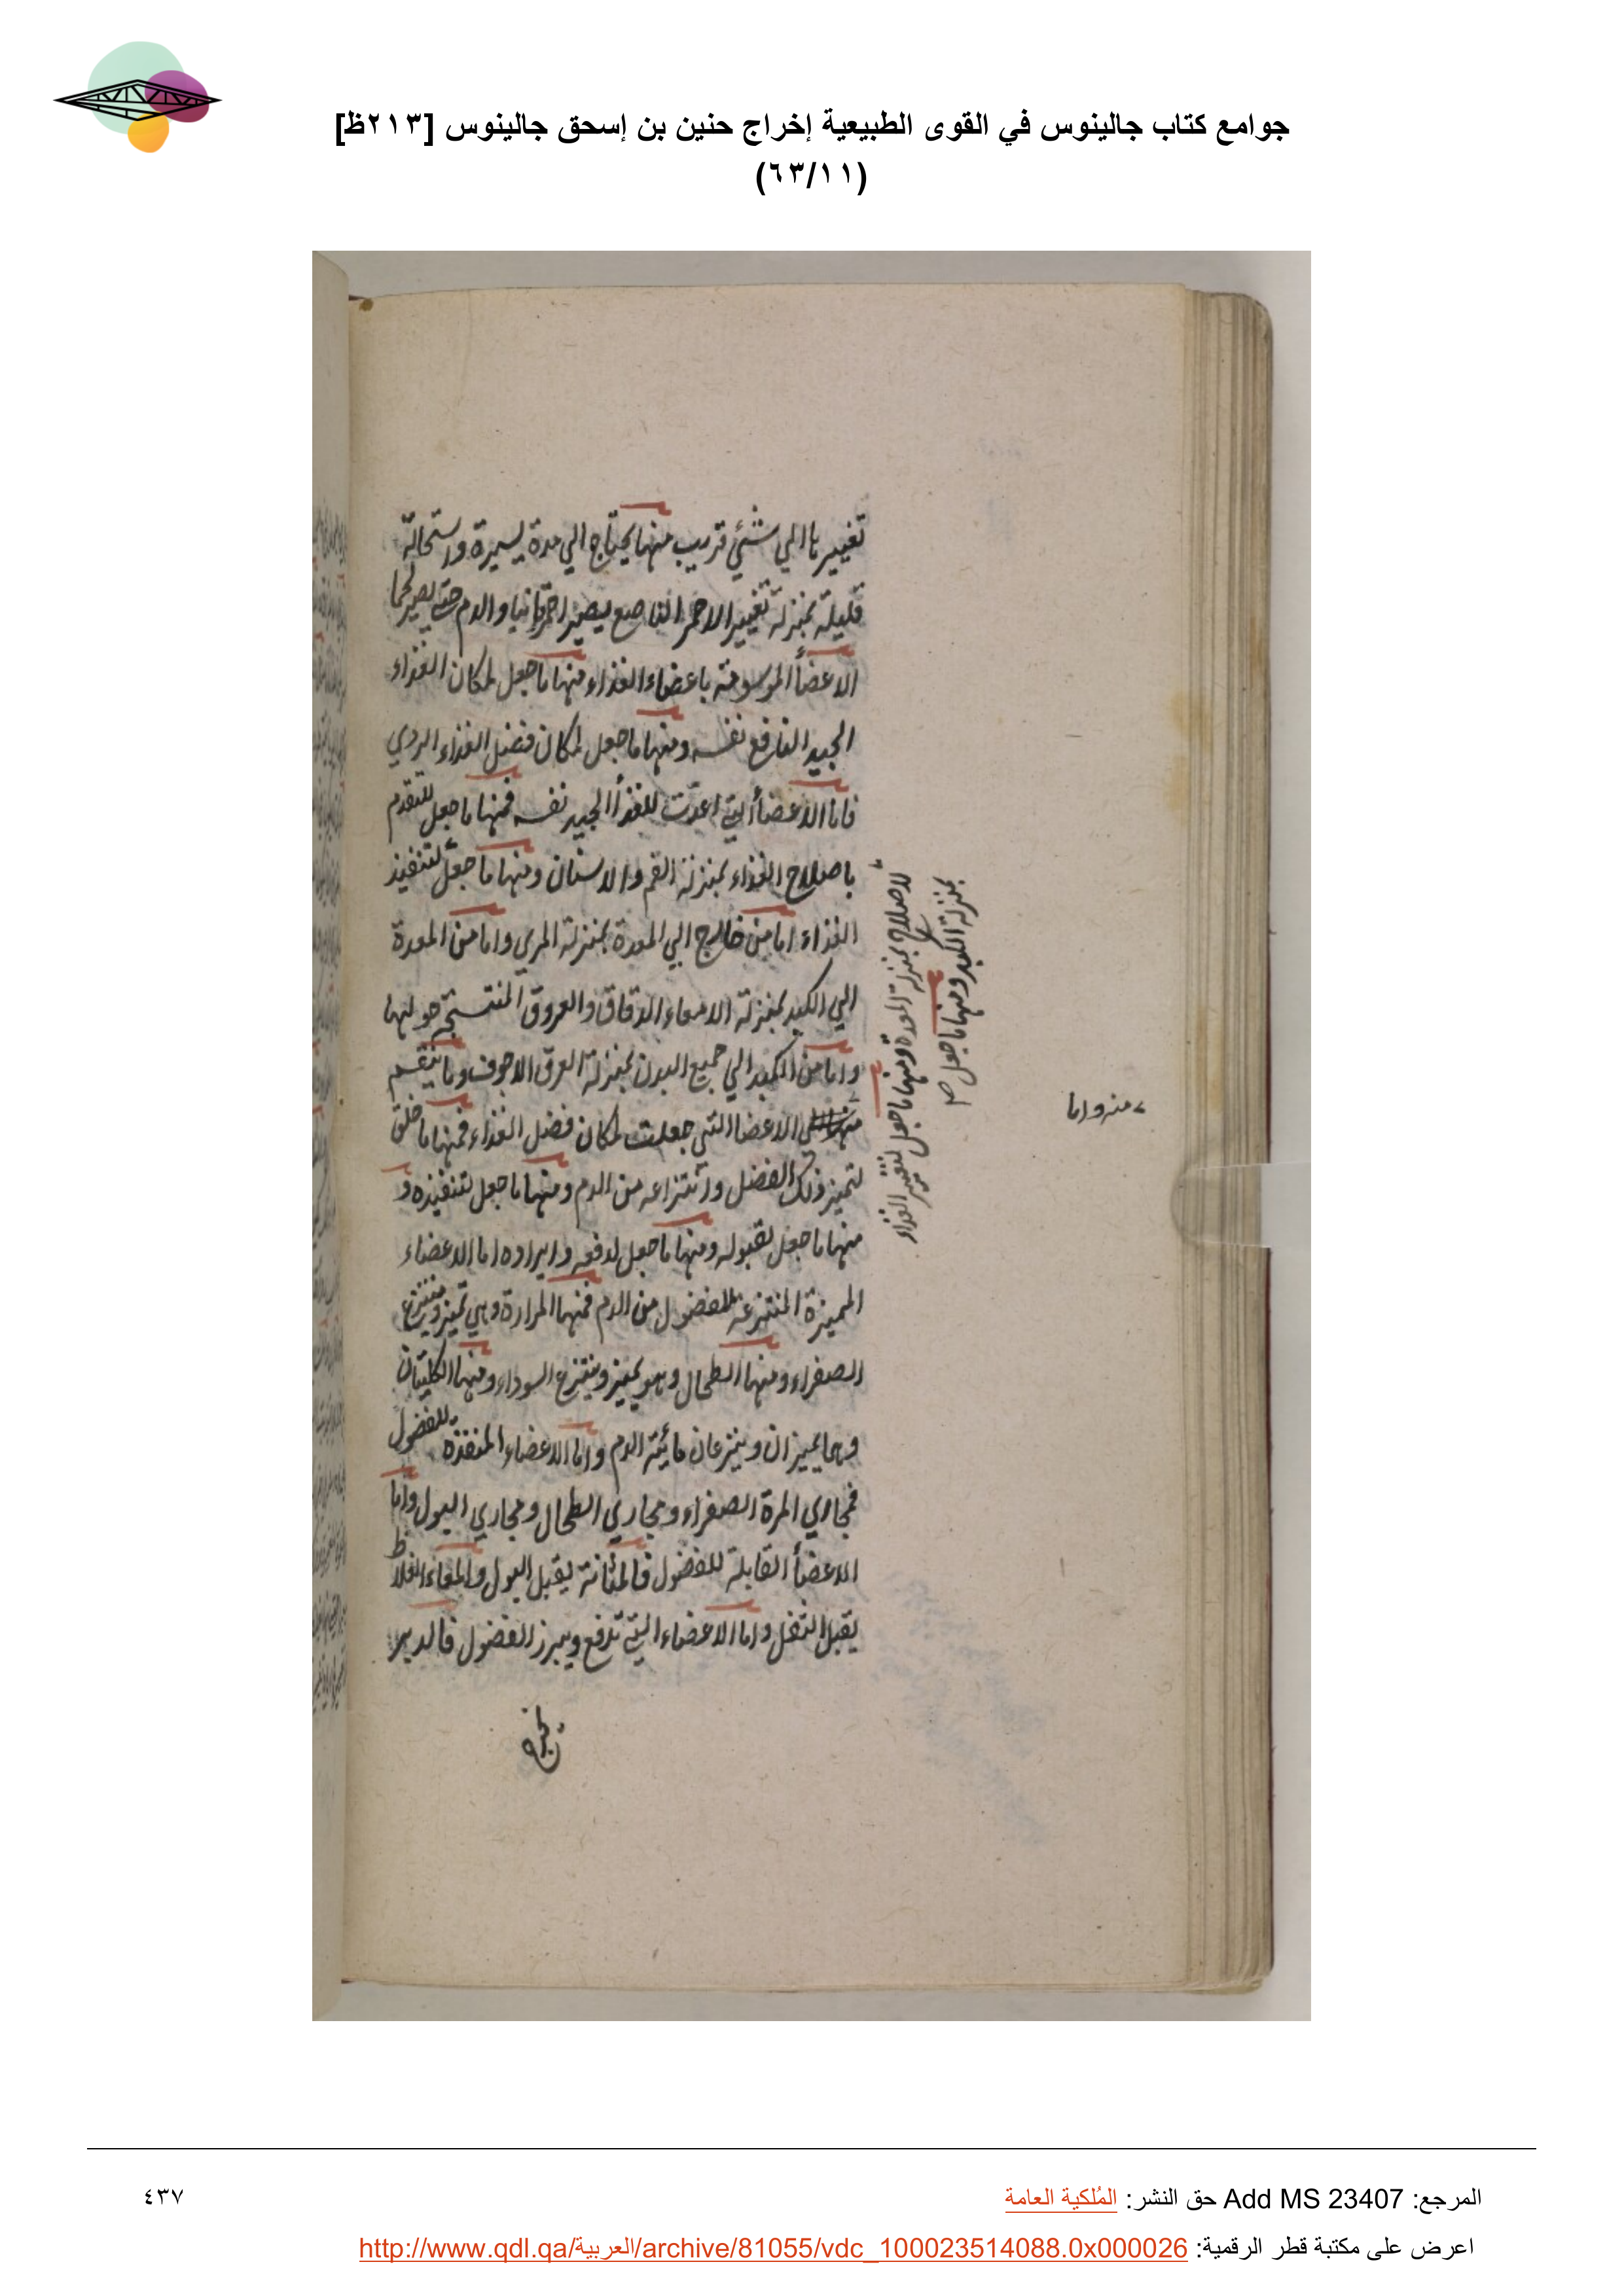 جوامع كتاب جالينوس في القوى الطبيعية إخراج حنين بن إسحق جالينوس [٢١٣ظ]
(٦٣/١١)
تغييرها الي شئي قريب منها يحتاج الي مدة يسيرة واستحالة
قليلة بمنزلة تغيير الاحمر الناصع ليصير احمر قانيا والدم حتي يصير لحما
الاعضأ الموسومة باعضاء الغذاء منها ما جعل لمكان الغذاء
الجيد النافع نفسه ومنها ما جعل لمكان فضل الغذاء الردي
فاما الاعضأ التي اعدت للغذأ الجيد نفسه فمنها ما جعل للتقدم
باصلاح الغذاء بمنزلة الفم والاسنان ومنها ما جعل لتنفيذ
الغذاء اما من خارج الي المعدة بمنزلة المري واما من المعدة
الي الكبد بمنزلة الامعاء الدقاق والعروق المنتسجة حولها
واما من الكبد الي جميع البدن بمنزلة العرق الاجوف وما ينقسم
الاعضا التي جعلت لمكان فضل الغذاء فمنها ما خلق
لتميز ذلك الفضل وانتزاعه من الدم ومنها ما جعل لتنفيذه و
منها ما جعل لقبوله ومنها ما جعل لدفعه وابرازه اما الاعضاء
المميزة المنتزعة للفضول من الدم فمنها المرارة وهي تميز وينتزع
الصفراء ومنها الطحال وهو يميز وينتزع السوداء ومنها الكليتان
وهما يميزان وينزعان مائية الدم واما الاعضاء المنفذة للفضول
فمجاري المرة الصفراء ومجاري الطحال ومجاري البول واما
الاعضأ القابلة للفضول فالمثانة يقبل البول والمعاء الغلاظ
يقبل الثفل واما الاعضاء التي تدفع ويبرز الفضول فالدبر
للاصلاح بمنزلة المعدة ومنها ما جعل لتغيير الغذاء
بمنزلة الكبد ومنها ما جعل
منه واما
المرجع: Add MS 23407 حق النشر: المُلكية العامة
٤٣٧
اعرض على مكتبة قطر الرقمية: http://www.qdl.qa/العربية/archive/81055/vdc_100023514088.0x000026